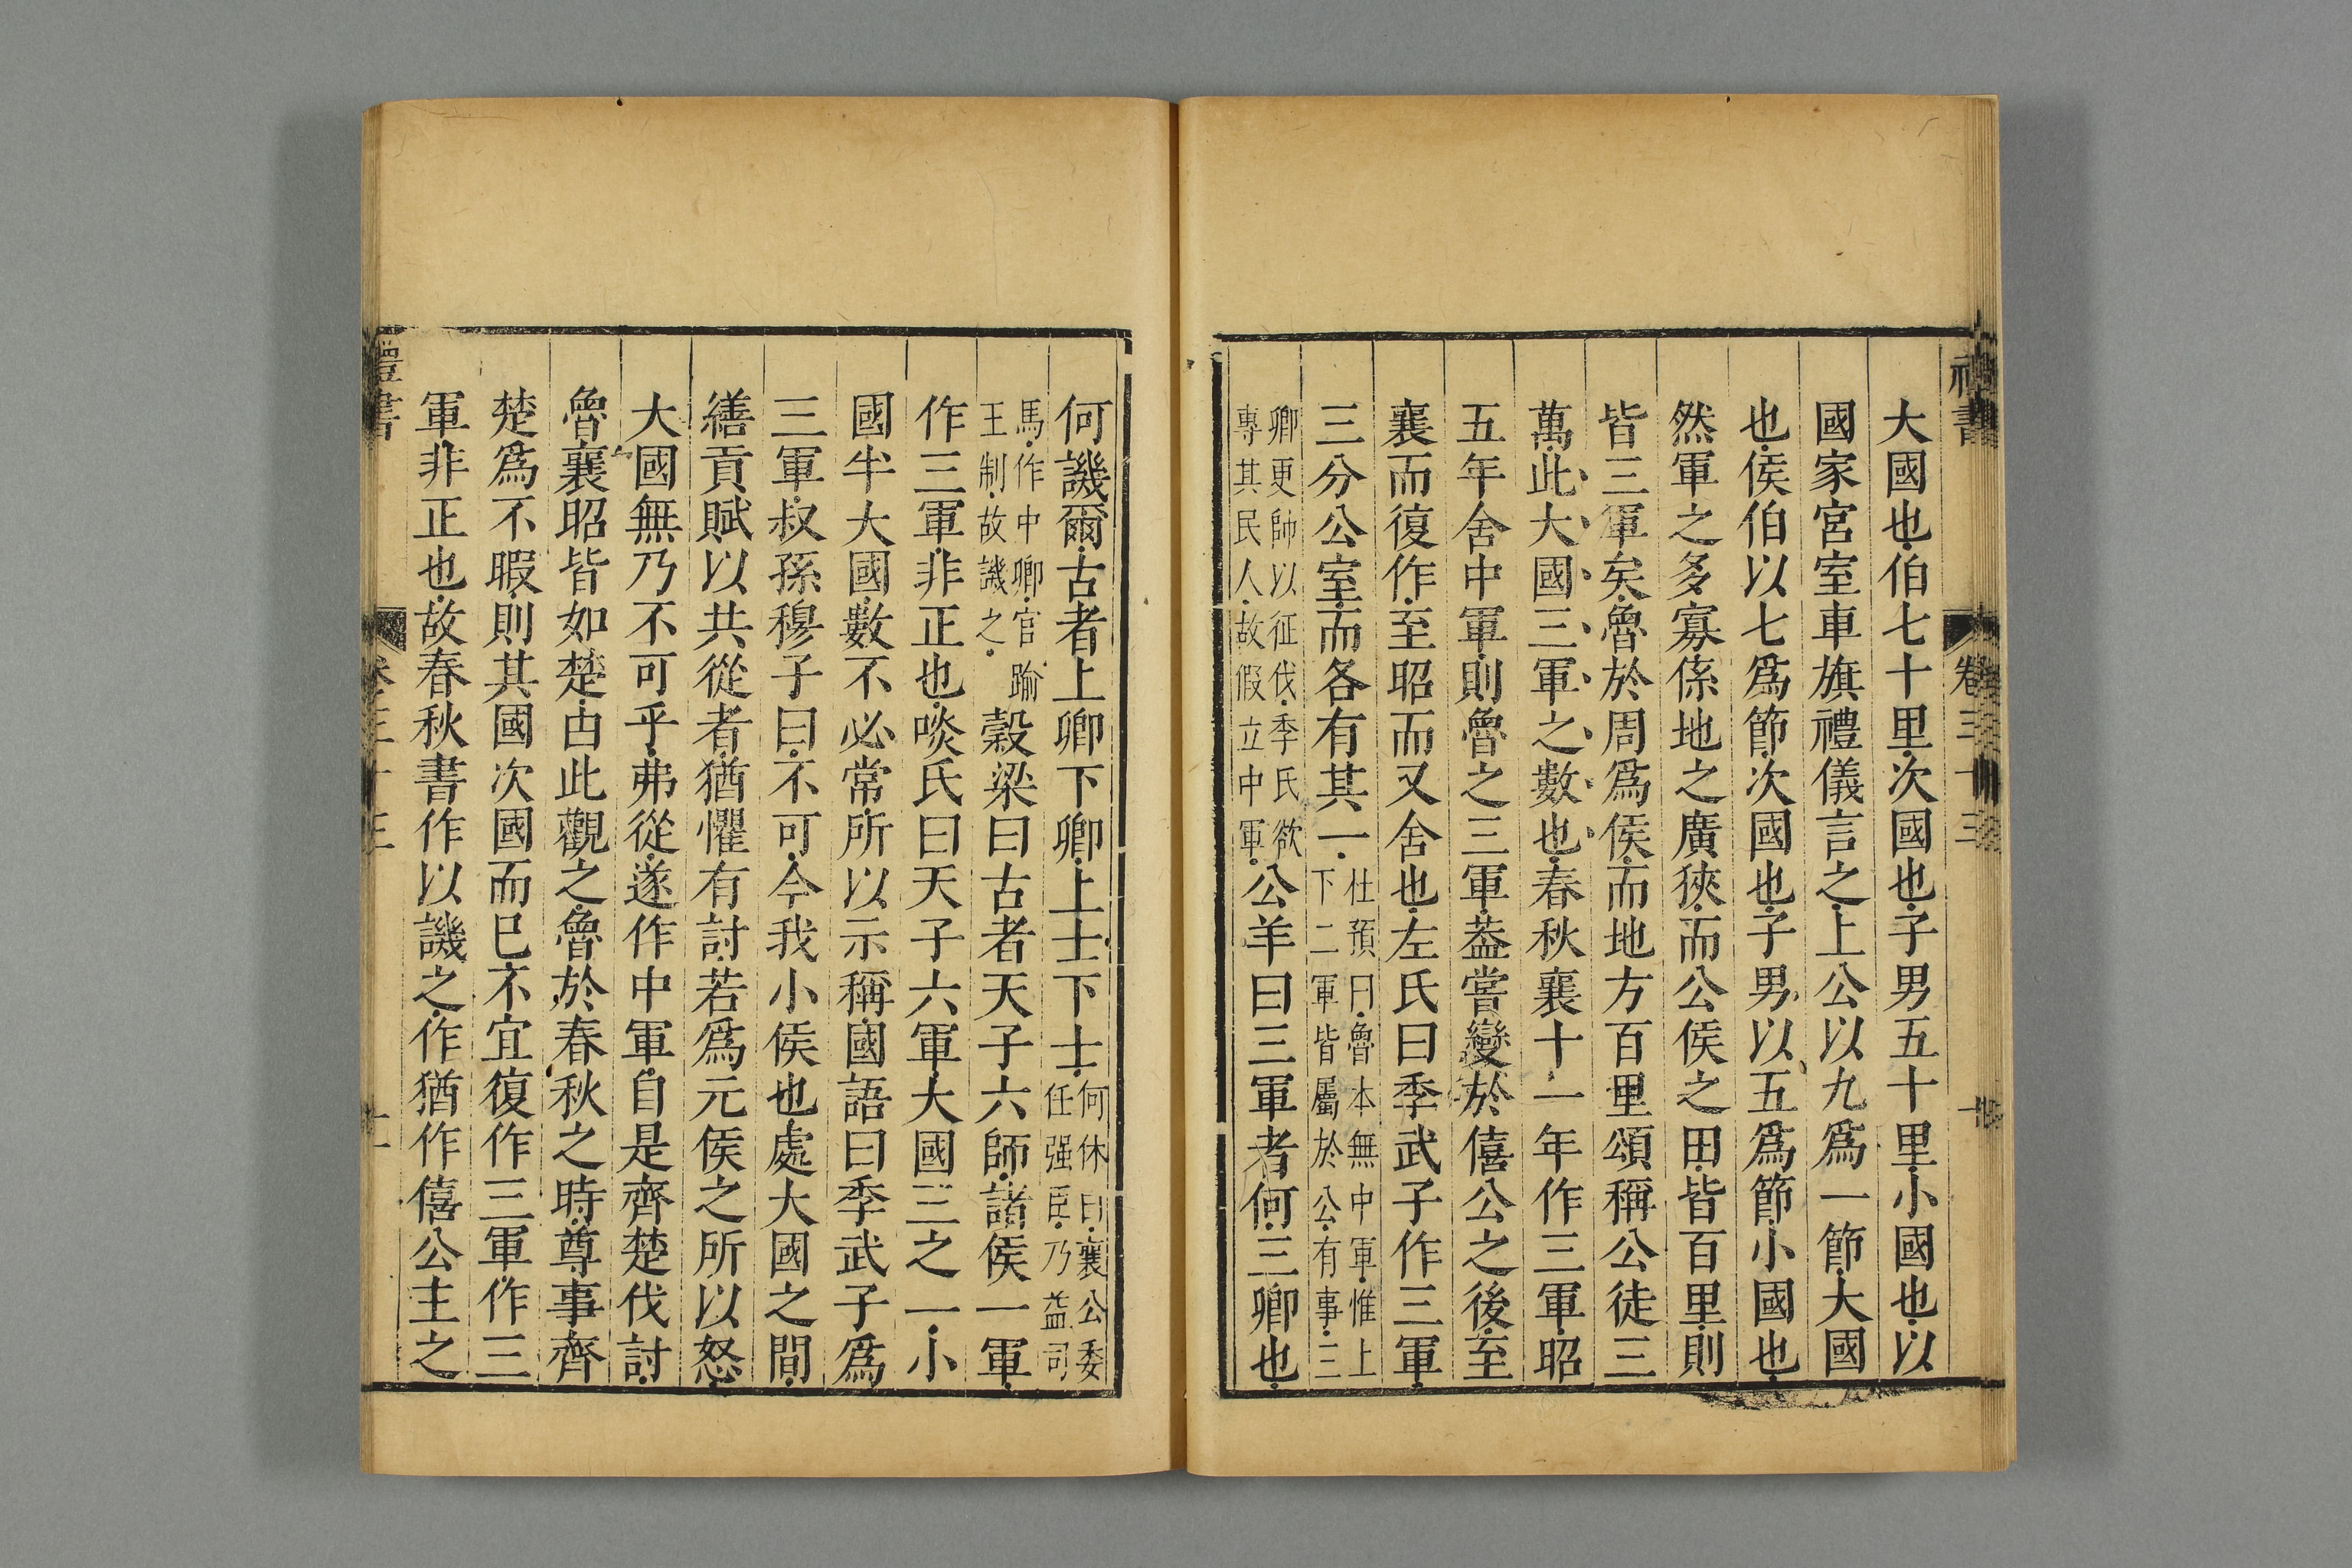 大國也伯七十里次國也子男五十里小國也以
國家宮室車旗禮儀言之上公以九爲一節大國
也侯伯以七爲節次國也子男以五爲節小國也
然軍之多寡係地之廣狹而公侯之田皆百里則
皆三軍矣魯於周爲侯而地方百里頌稱公徒三
萬此大國三軍之數也春秋襄十一年作三軍昭
五年舍中軍則魯之三軍葢嘗變於僖公之後至
襄而復作至昭而又舍也左氏曰季武子作三軍
三分公室而各有其一杜預曰魯本無中軍惟上下二軍皆屬於公有事三
卿更帥以征伐季氏欲專其民人故假立中軍公羊曰三軍者何三卿也
何譏爾古者上卿下卿上士下士何休曰襄公委任强臣乃益司
馬作中卿官踰王制故譏之穀梁曰古者天子六師諸侯一軍
作三軍非正也啖氏曰天子六軍大國三之一小
國半大國數不必常所以示稱國語曰季武子爲
三軍叔孫穆子曰不可今我小侯也處大國之間
繕貢賦以共從者猶懼有討若爲元侯之所以怒
大國無乃不可乎弗從遂作中軍自是齊楚伐討
魯襄昭皆如楚由此觀之魯於春秋之時尊事齊
楚爲不暇則其國次國而巳不宜復作三軍作三
軍非正也故春秋書作以譏之作猶作僖公主之
禮書
卷三十三